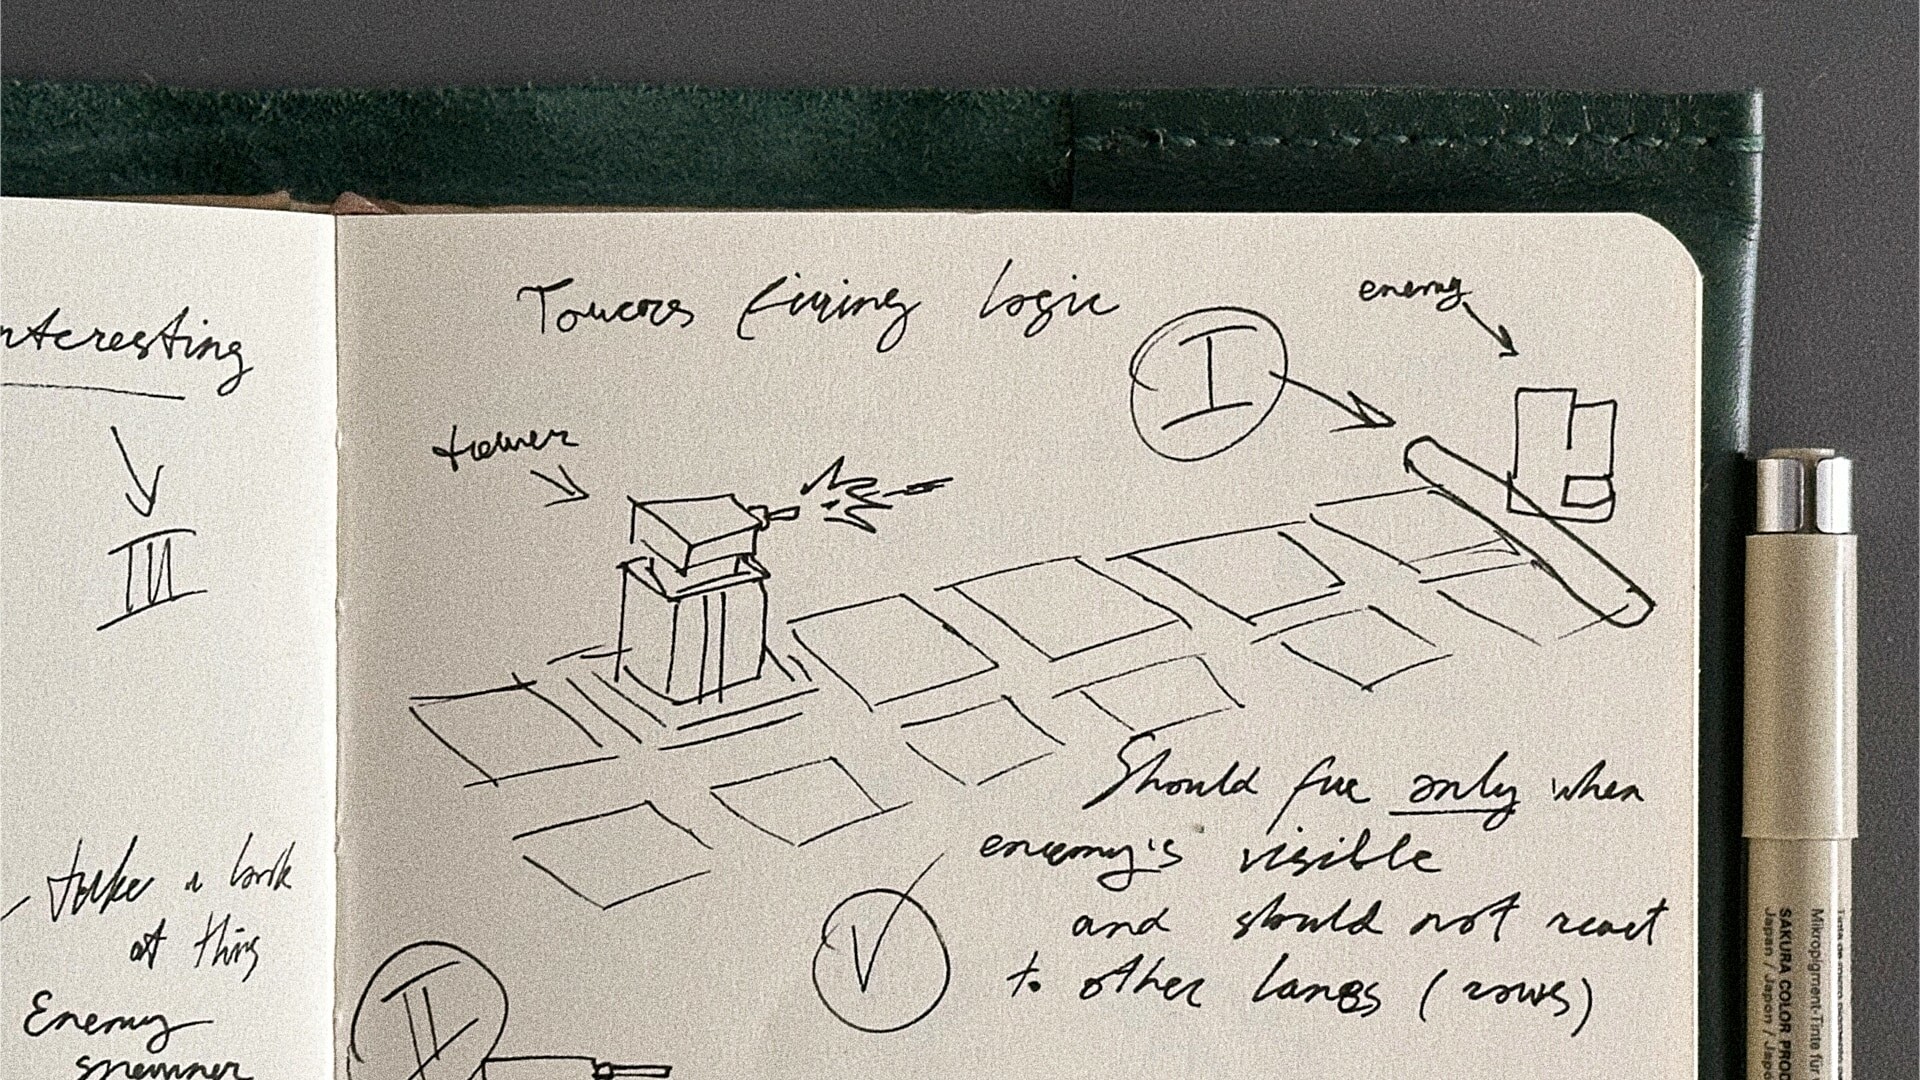 nteresting
III
take a look
at this
Enemy
spawner
Towers firing logic
I
enemy
tower
Should fire only when
enemy's visible
and should not react
to other lanes (rows)
V
II
Mikropigment-Tinte für
SAKURA COLOR PROD
Japan / Japon / Japa